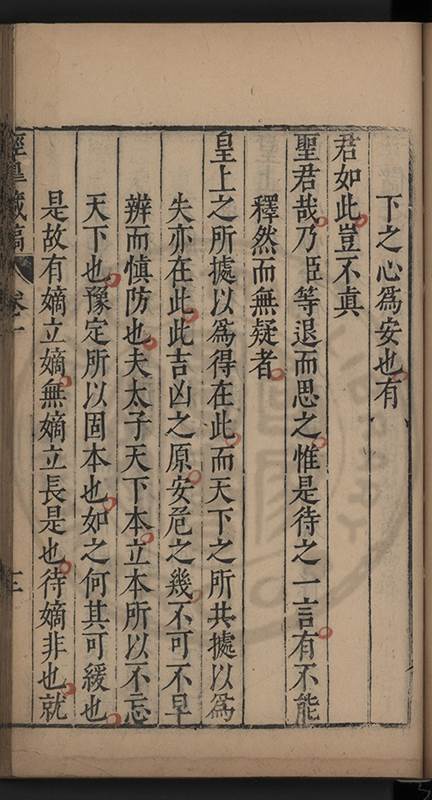 下之心爲安也有
君如此豈不眞
聖君哉乃臣等退而思之惟是待之一言有不能
釋然而無疑者
皇上之所據以爲得在此而天下之所共據以爲
失亦在此此吉凶之原安危之幾不可不早
辨而愼防也夫太子天下本立本所以不忘
天下也豫定所以固本也如之何其可緩也
是故有嫡立嫡無嫡立長是也待嫡非也就
卷一
三